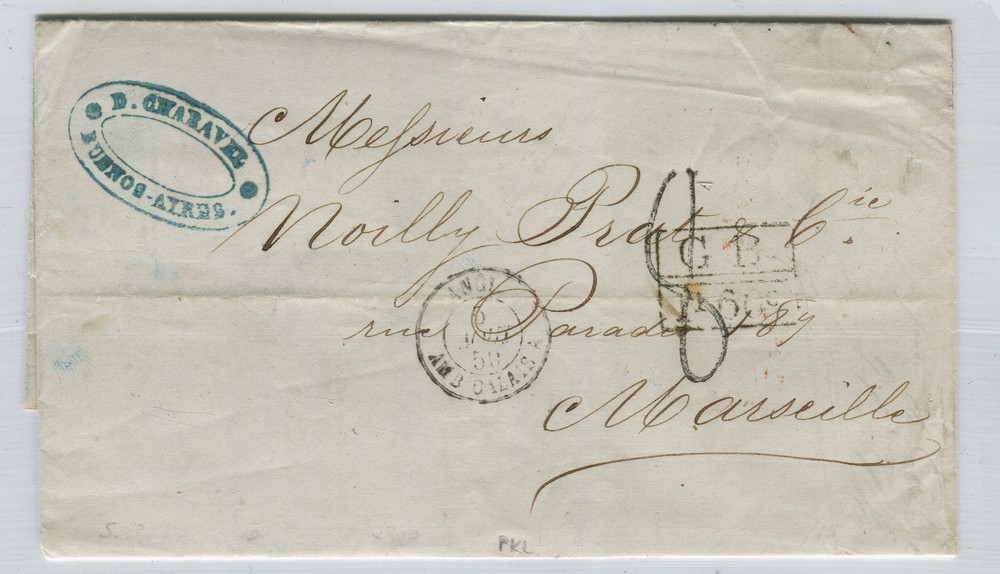 D. CHARAVEL
BUENOS-AYRES.
Messieurs
Noilly Prat & Cie.
rue Paradis 187
Marseille
GB
1F 60c
ANGL.
5
AOUT
59
AMB. CALAIS A
PKL